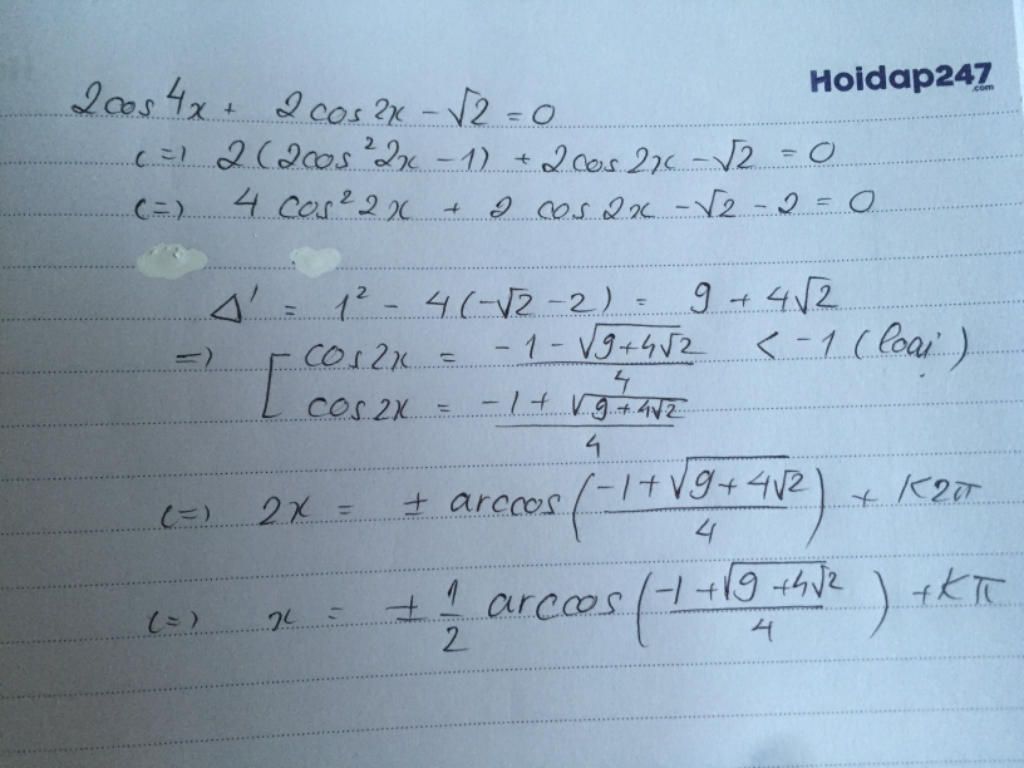 Hoidap247
.com
2cos4x + 2cos2x - √2 = 0
(=) 2(2cos²2x - 1) + 2cos2x - √2 = 0
(=) 4 cos²2x + 2 cos2x - √2 - 2 = 0
Δ' = 1² - 4(-√2 - 2) = 9 + 4√2
=) [ cos2x = (-1 - √(9+4√2))/4 < -1 (loại)
cos2x = (-1 + √(9+4√2))/4
(=) 2x = ± arccos((-1+√(9+4√2))/4) + K2π
(=) x = ± 1/2 arccos((-1+√(9+4√2))/4) + Kπ